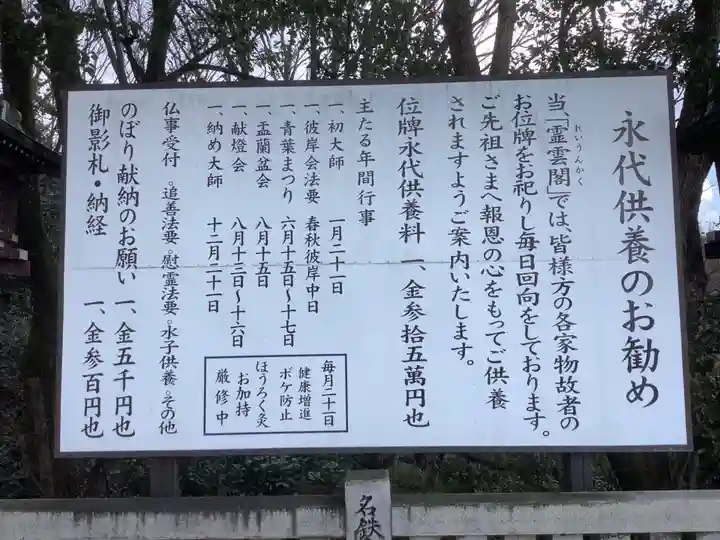 永代供養のお勧め
当、「霊雲閣」では、皆様方の各家物故者の
れいうんかく
お位牌をお祀りし毎日回向をしております。
ご先祖さまへ報恩の心をもってご供養
されますようご案内いたします。
位牌永代供養料 一、金参拾五萬円也
主たる年間行事
一、初大師 一月二十一日
一、彼岸会法要 春秋彼岸中日
一、青葉まつり 六月十五日〜十七日
一、盂蘭盆会 八月十五日
一、献燈会 八月十三日〜十六日
一、納め大師 十二月二十一日
毎月二十一日
健康増進
ボケ防止
ほうろく灸
お加持
厳修中
仏事受付 。追善法要。慰霊法要。水子供養。その他
のぼり献納のお願い 一、金五千円也
御影札・納経 一、金参百円也
名鉄